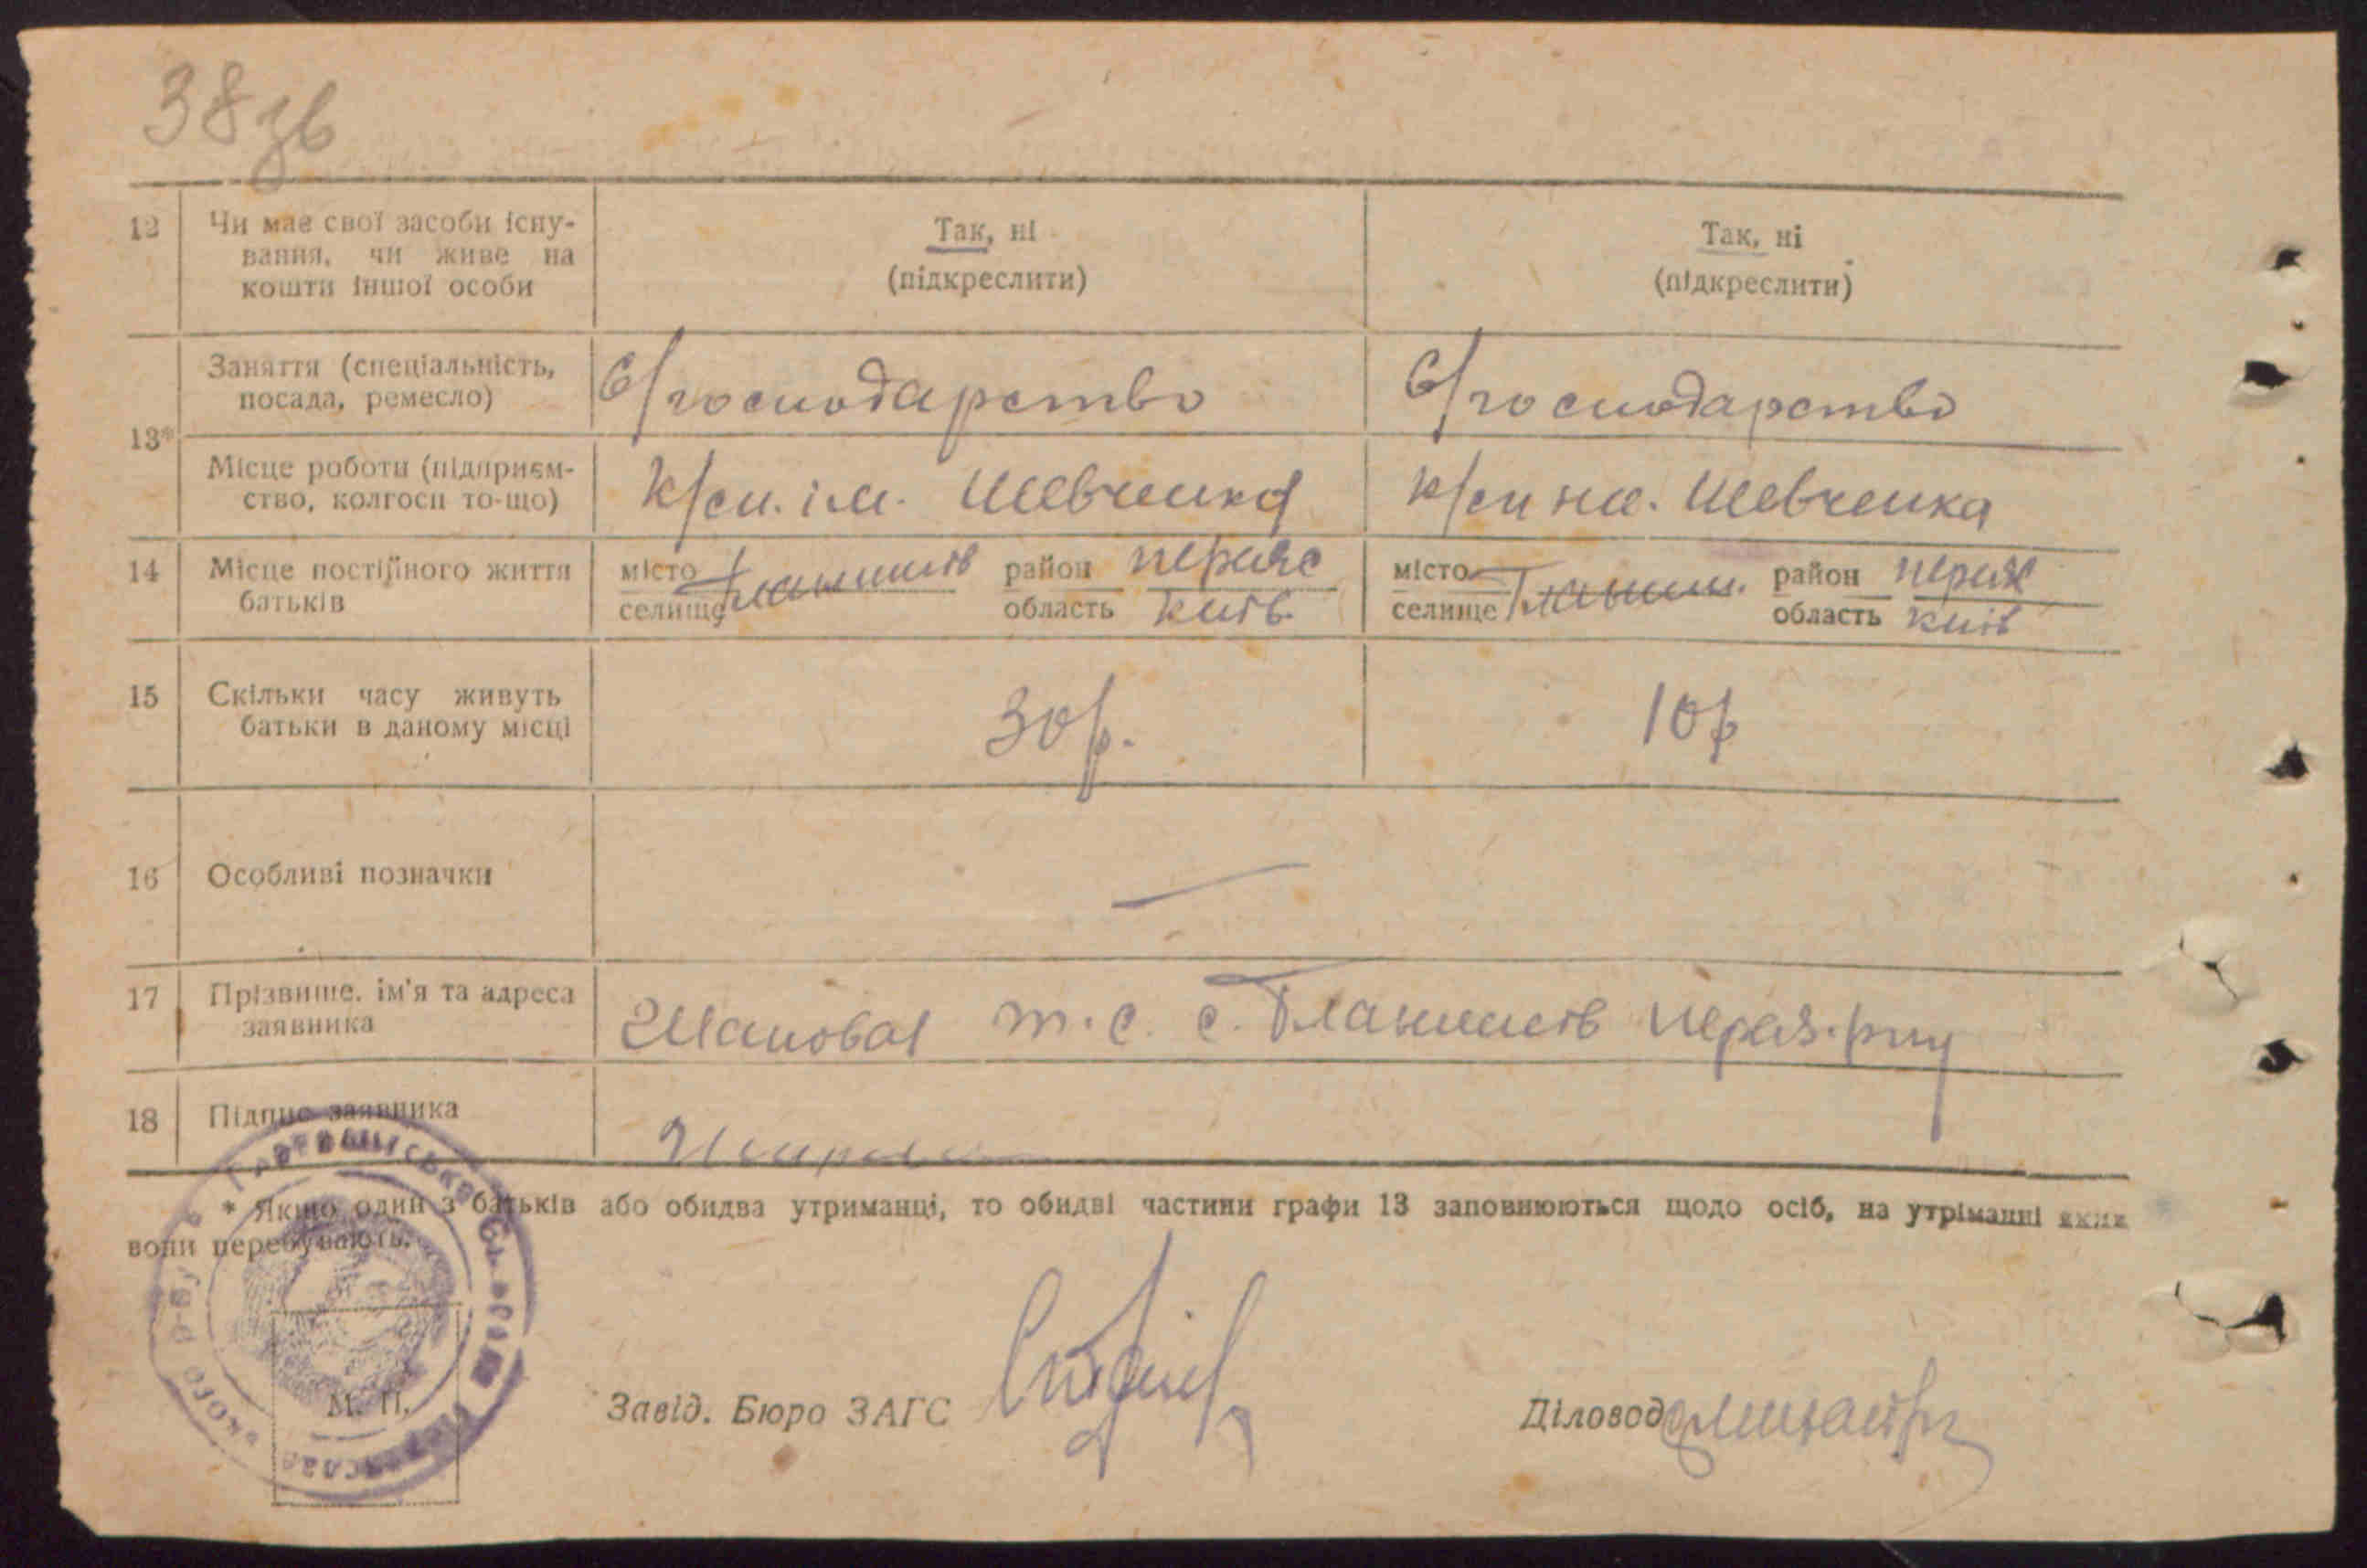 38 зв
12 Чи має свої засоби існу-
вання, чи живе на
кошти іншої особи
Так, ні
(підкреслити)
Так, ні
(підкреслити)
13*
Заняття (спеціальність,
посада, ремесло)
С/господарство
С/господарство
Місце роботи (підприєм-
ство, колгосп то-що)
К/сп. ім. Шевченка
к/сп ім. Шевченка
14 Місце постійного життя
батьків
місто
селище
район перяс
область Київ
місто
селище
район перяс
область Київ
15 Скільки часу живуть
батьки в даному місці
30 р.
10 р
16 Особливі позначки
—
17 Прізвище, ім'я та адреса
заявника
Шаповал т. с. с.
18 Підпис заявника
* Якщо один з батьків або обидва утриманці, то обидві частини графи 13 заповнюються щодо осіб, на утріманні яких
вони перебувають.
М. П.
Завід. Бюро ЗАГС
Діловод